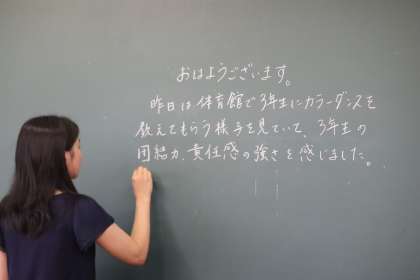 おはようございます。
昨日は体育館で3年生にカラーダンスを
教えてもらう様子を見ていて、3年生の
団結力、責任感の強さを感じました。